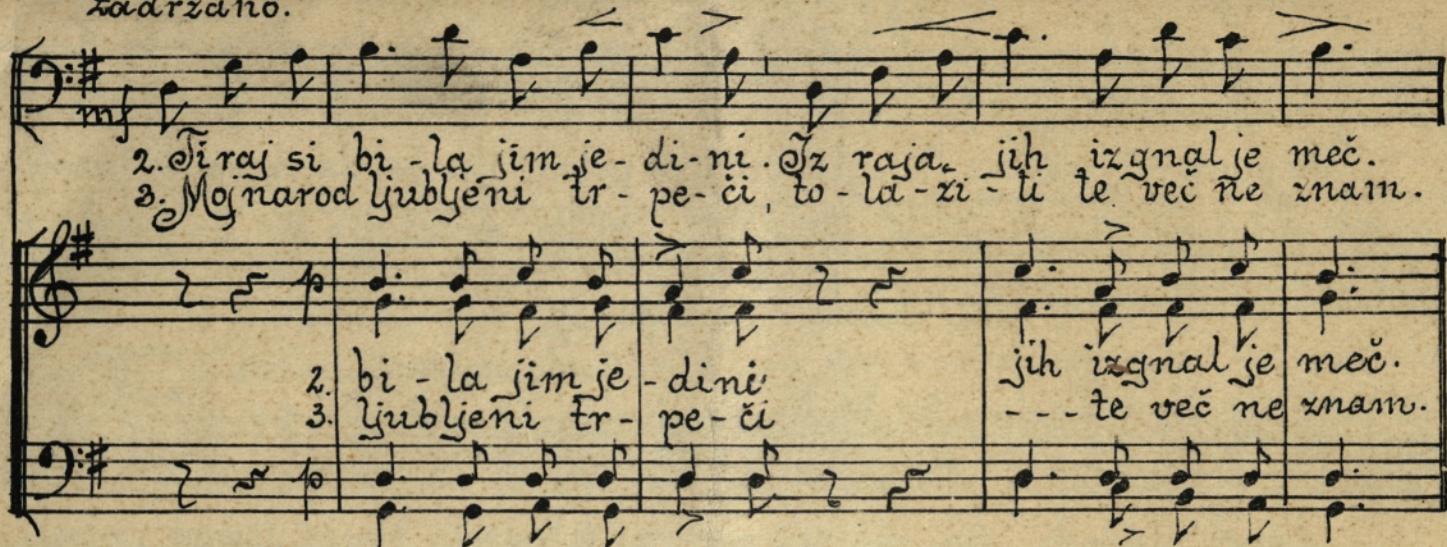 zadržano.
mf
2. Ti raj si bi-la jim je-di-ni. Iz raja jih izgnal je meč.
3. Moj narod ljubljeni tr-pe-či, to-la-ži-ti te več ne znam.
p
2. bi-la jim je-dini jih izgnal je meč.
3. ljubljeni tr-pe-či --- te več ne znam.
p